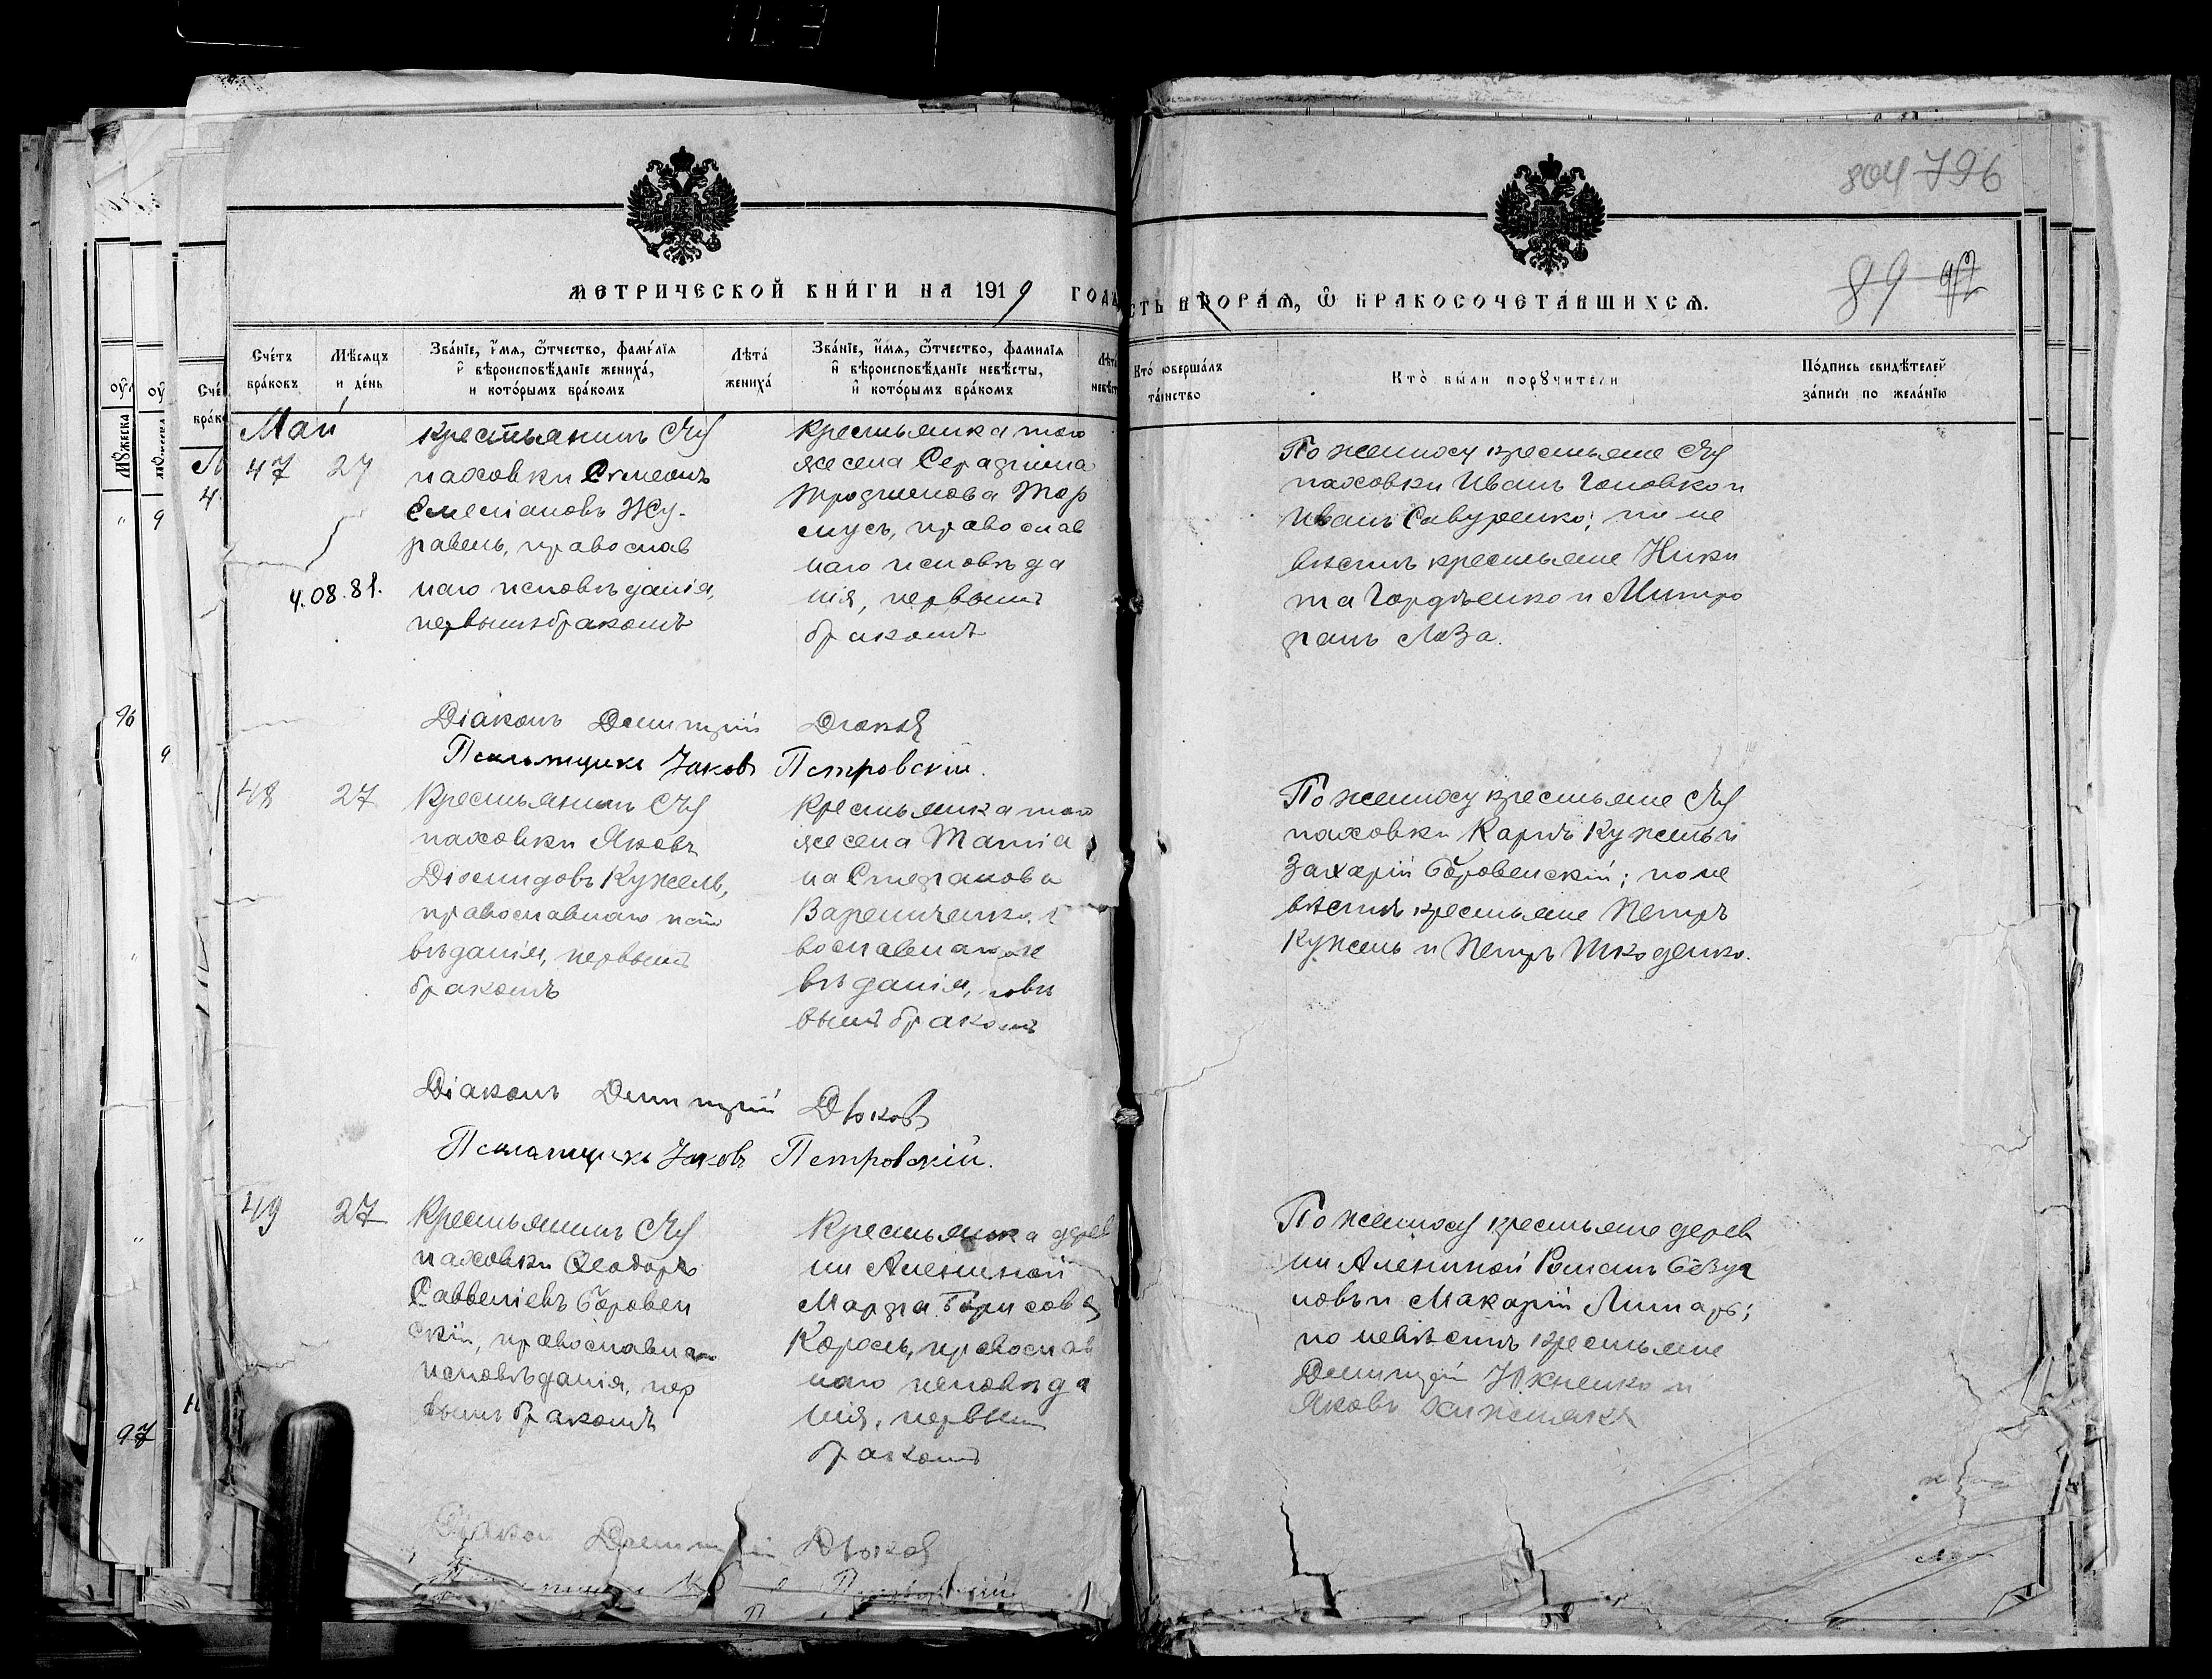 804 796
89 97
МЕТРИЧЕСКОЙ КНИГИ НА 1919 ГОДЪ
СТЬ ВТОРАЯ, Ѿ БРАКОСОЧЕТАВШИХСЯ.
Счетъ браковъ
Мѣсяцъ и день
Званіе, имя, ѿтчество, фамилія и вѣроисповѣданіе жениха, и которымъ бракомъ
Лѣта жениха
Званіе, имя, ѿтчество, фамилія и вѣроисповѣданіе невѣсты, и которымъ бракомъ
Лѣта невѣст
Кто совершалъ таинство
Кто были порꙋчители
Подпись свидѣтелей записи по желанію
Май
47 27
крестьянинъ Чу
паховки Симеонъ
Емеліановъ Жу-
равель, православ
наго исповѣданія,
первымъ бракомъ
4.08.81.
Крестьянка того
же села Серафима
Трофимова Тор
мусъ, православ
наго исповѣда
нія, первымъ
бракомъ
По жениху крестьяне Чу
паховки Иванъ Головко и
Иванъ Савуренко; по не
вѣстѣ крестьяне Ники
та Гордѣенко и Митро
фанъ Лоза.
Діаконъ Димитрій Дюковъ
Псаломщикъ Іаковъ Петровскій.
48 27
Крестьянинъ Чу
паховки Яковъ
Діомидовъ Кужель,
православнаго испо
вѣданія, первымъ
бракомъ
Крестьянка того
же села Татіа
на Стефанова
вославнаго
вѣданія,
вымъ бракомъ
По жениху крестьяне Чу
паховки Карпъ Кужель и
Захарій Боровенскій; по не
вѣстѣ крестьяне Петръ
Кужель и Петръ Шкоденко.
Діаконъ Димитрій Дюковъ
Псаломщикъ Іаковъ Петровскій.
49 27
Крестьянинъ Чу
паховки Ѳеодоръ
Савеліевъ Боровен
скій, православнаго
исповѣданія, пер
вымъ бракомъ
Крестьянка дерев
ни Алениной
Марфа Борисова
Король, православ
наго исповѣда
нія, первымъ
бракомъ
По жениху крестьяне дерев
ни Алениной Романъ Безуг
ловъ и Макарій Литарь;
по невѣстѣ крестьяне
Димитрій Юхненко и
Яковъ
Діаконъ Димитрій Дюковъ